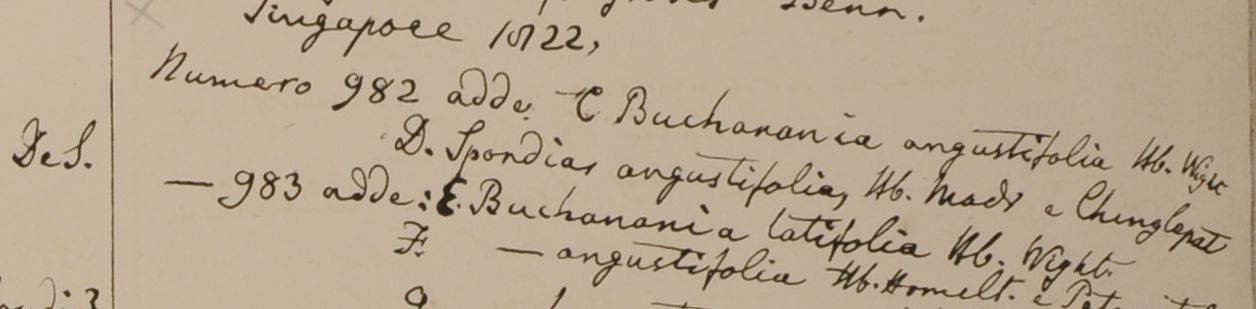 Benn.
Singapore 1822,
Numero 982 adde. C Buchanania angustifolia Hb. Wight
DeS.
D. Spondias angustifolia, Hb. Madr e Chinglepat
— 983 adde: E. Buchanania latifolia Hb. Wight.
F. — angustifolia Hb. Hamilt. e